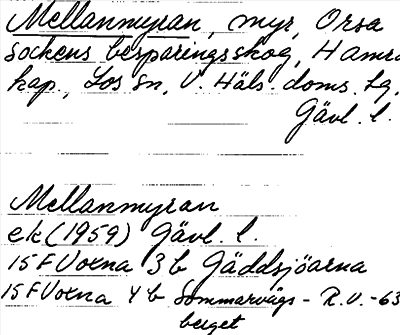 Mellanmyran, myr, Orsa
sockens besparingsskog, Hamra
kap., Los sn, V. Häls. doms. tg,
Gävl. l.
Mellanmyran
ek (1959) Gävl. l.
15 F Voxna 3 b Gäddsjöarna
15 F Voxna 4 b Sommarvägs- R.V. -63
berget